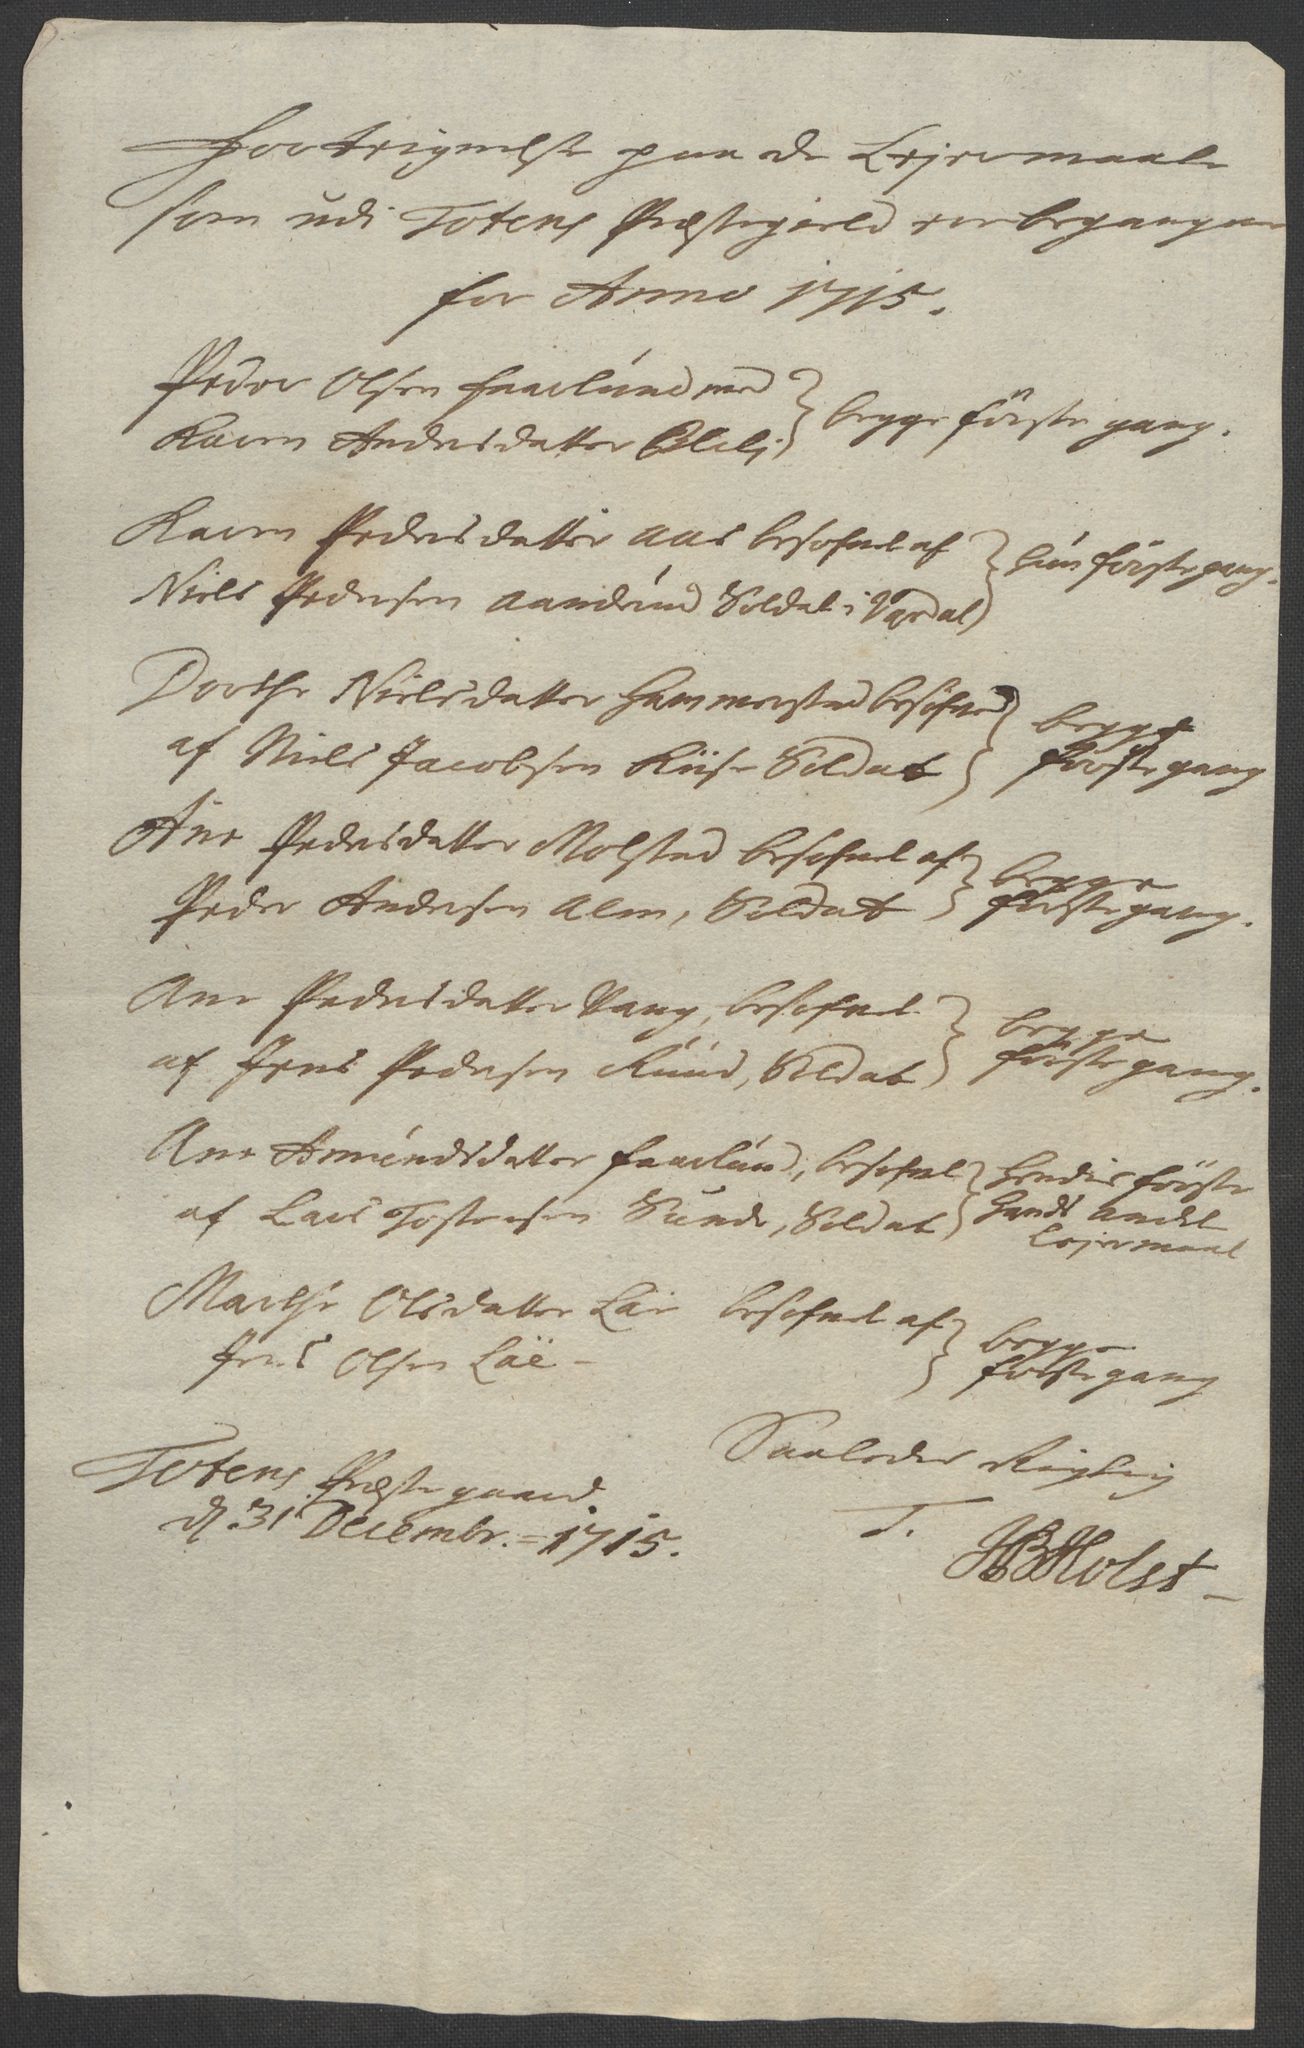 Forteignelse paa de Lejermaale
som udi Totens Præstegield ere begangne
for Anno 1715.
Peder Olsen Faarlund med
Karen Andersdatter } begge förste gang.
Karen Pedersdatter Aas besofvet af
Niels Pedersen Soldat i Vardal } hun förste gang.
Dorthe Nielsdatter Hammerstad besofved
af Niels Jacobsen Riise Soldat } begge förste gang
Ane Pedersdatter Molstad besofvet af
Peder Andersen Alm, Soldat } begge förste gang.
Ane Pedersdatter Vang, besofvet
af Jens Pedersen Ruud, Soldat } begge förste gang.
Ane Amundsdatter Faarlund, besofvet
af Lars Tostensen Sunde, Soldat } hendis förste hands andet lejermaal
Marthe Olsdatter Lae besofvet af
Jens Olsen Läe - } begge förste gang
Saaledes Rigtig
Totens Præstegaard
d. 31 Decembr. = 1715.
T. HBHolst -